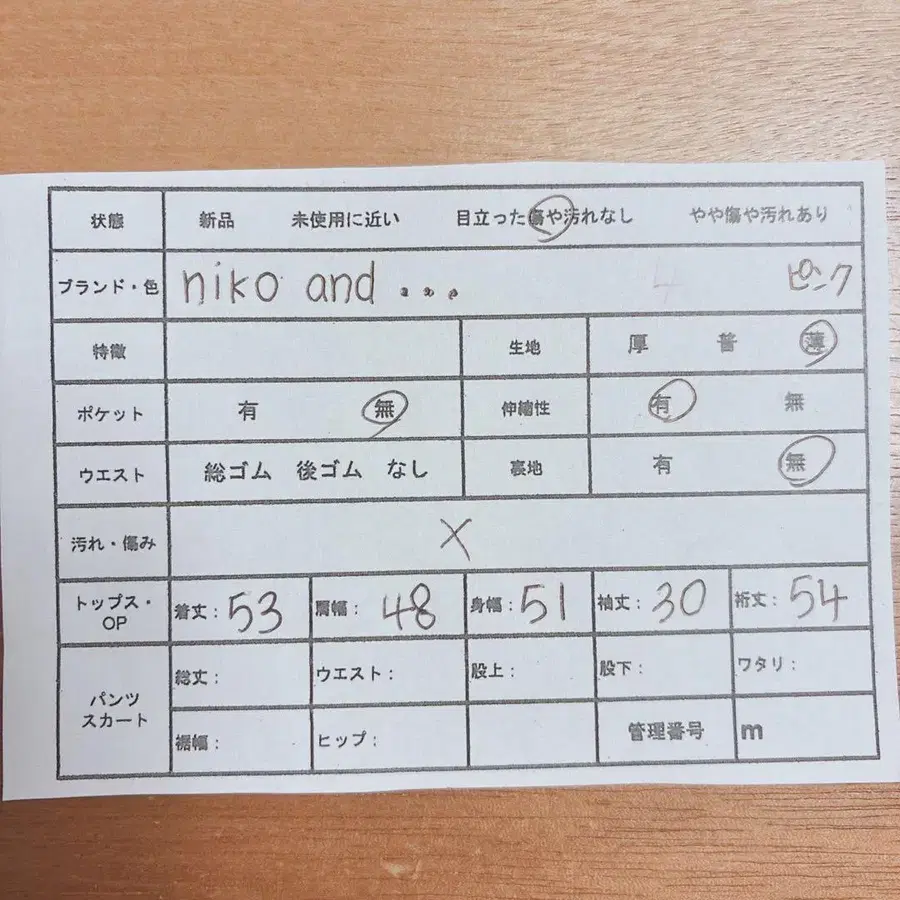 状態 新品 未使用に近い 目立った傷や汚れなし やや傷や汚れあり
ブランド・色 niko and ... ピンク
特徴 生地 厚 普 薄
ポケット 有 無 伸縮性 有 無
ウエスト 総ゴム 後ゴム なし 裏地 有 無
汚れ・傷み X
トップス・OP 着丈: 53 肩幅: 48 身幅: 51 袖丈: 30 裄丈: 54
パンツ スカート 総丈: ウエスト: 股上: 股下: ワタリ:
裾幅: ヒップ: 管理番号 m